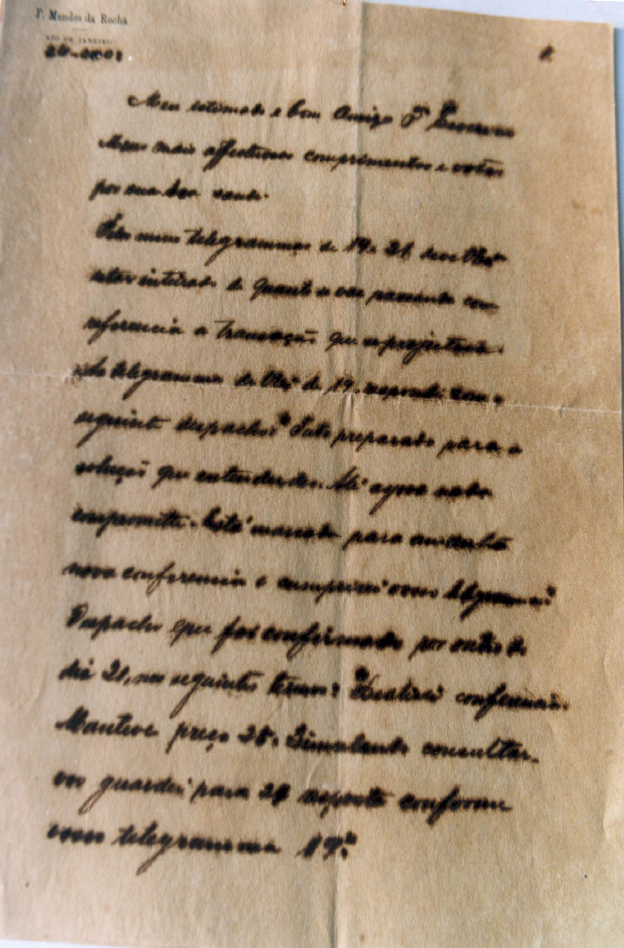 P. Mendes da Rocha
RIO DE JANEIRO
Meu estimado e bom Amigo Sr
Meus mais affectuosos comprimentos e votos
por sua boa saude.
Pelos meus telegrammas de 19 e 21, deve
estar inteirado de quanto se vae passando com
referencia a transação que se projectava.
telegramma de 19, respondi com o
seguinte despacho: " preparado para a
solução que entenderdes. Até agora nada
compromette. Está marcada para amanhã
nova conferencia e cumprirei vosso telegramma"
Despacho que foi confirmado por outro de
dia 21, nos seguintes termos: "Realizei conferencia.
Manteve preço 25. Simulando consultar-
vos guardei para 24 resposta conforme
vosso telegramma 19."